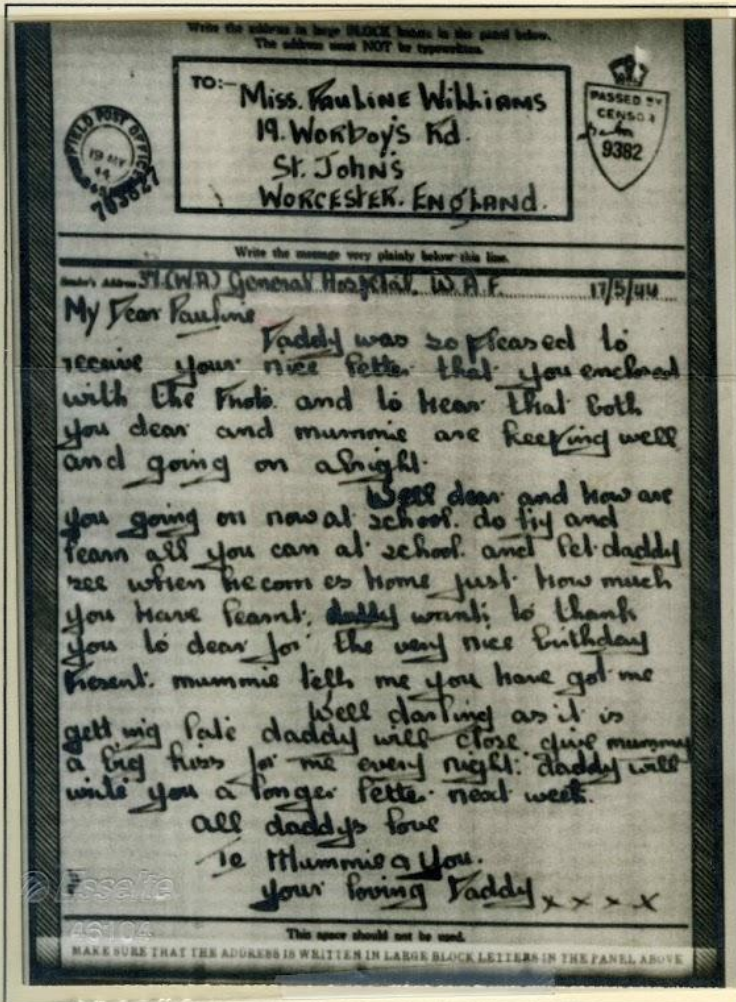 Write the address in large BLOCK letters in the panel below.
The address must NOT be typewritten.
TO:-
Miss. PAULINE WILLIAMS
19. WORBOY'S Rd.
St. JOHN'S
WORCESTER. ENGLAND.
FIELD POST OFFICE
19 MY
44
703627
PASSED BY
CENSOR
9382
Write the message very plainly below this line.
Sender's Address 37 (W.A) General Hospital. W.A.F. 17/5/44
My Dear Pauline
Daddy was so pleased to
receive your nice letter that you enclosed
with the Photo. and to hear that both
you dear and mummie are keeping well
and going on alright.
Well dear and how are
you going on now at school. do try and
learn all you can at school. and let daddy
see when he com es home just how much
you have learnt. daddy wants to thank
you to dear for the very nice birthday
Present. mummie tells me you have got me
Well darling as it is
gett ing late daddy will close give mummy
a big kiss for me every night. daddy will
write you a longer letter next week.
All daddys love
To Mummie & You.
your loving Daddy x x x x
This space should not be used.
MAKE SURE THAT THE ADDRESS IS WRITTEN IN LARGE BLOCK LETTERS IN THE PANEL ABOVE
Esselte
46104